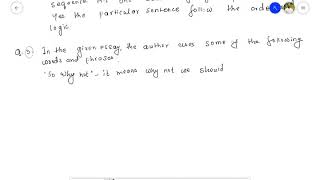 sequence
Yes the particular sentence follow the order
logic
Q 5. In the given essay, the author uses some of the following
words and phrases.
"So why not" - it means why not we should